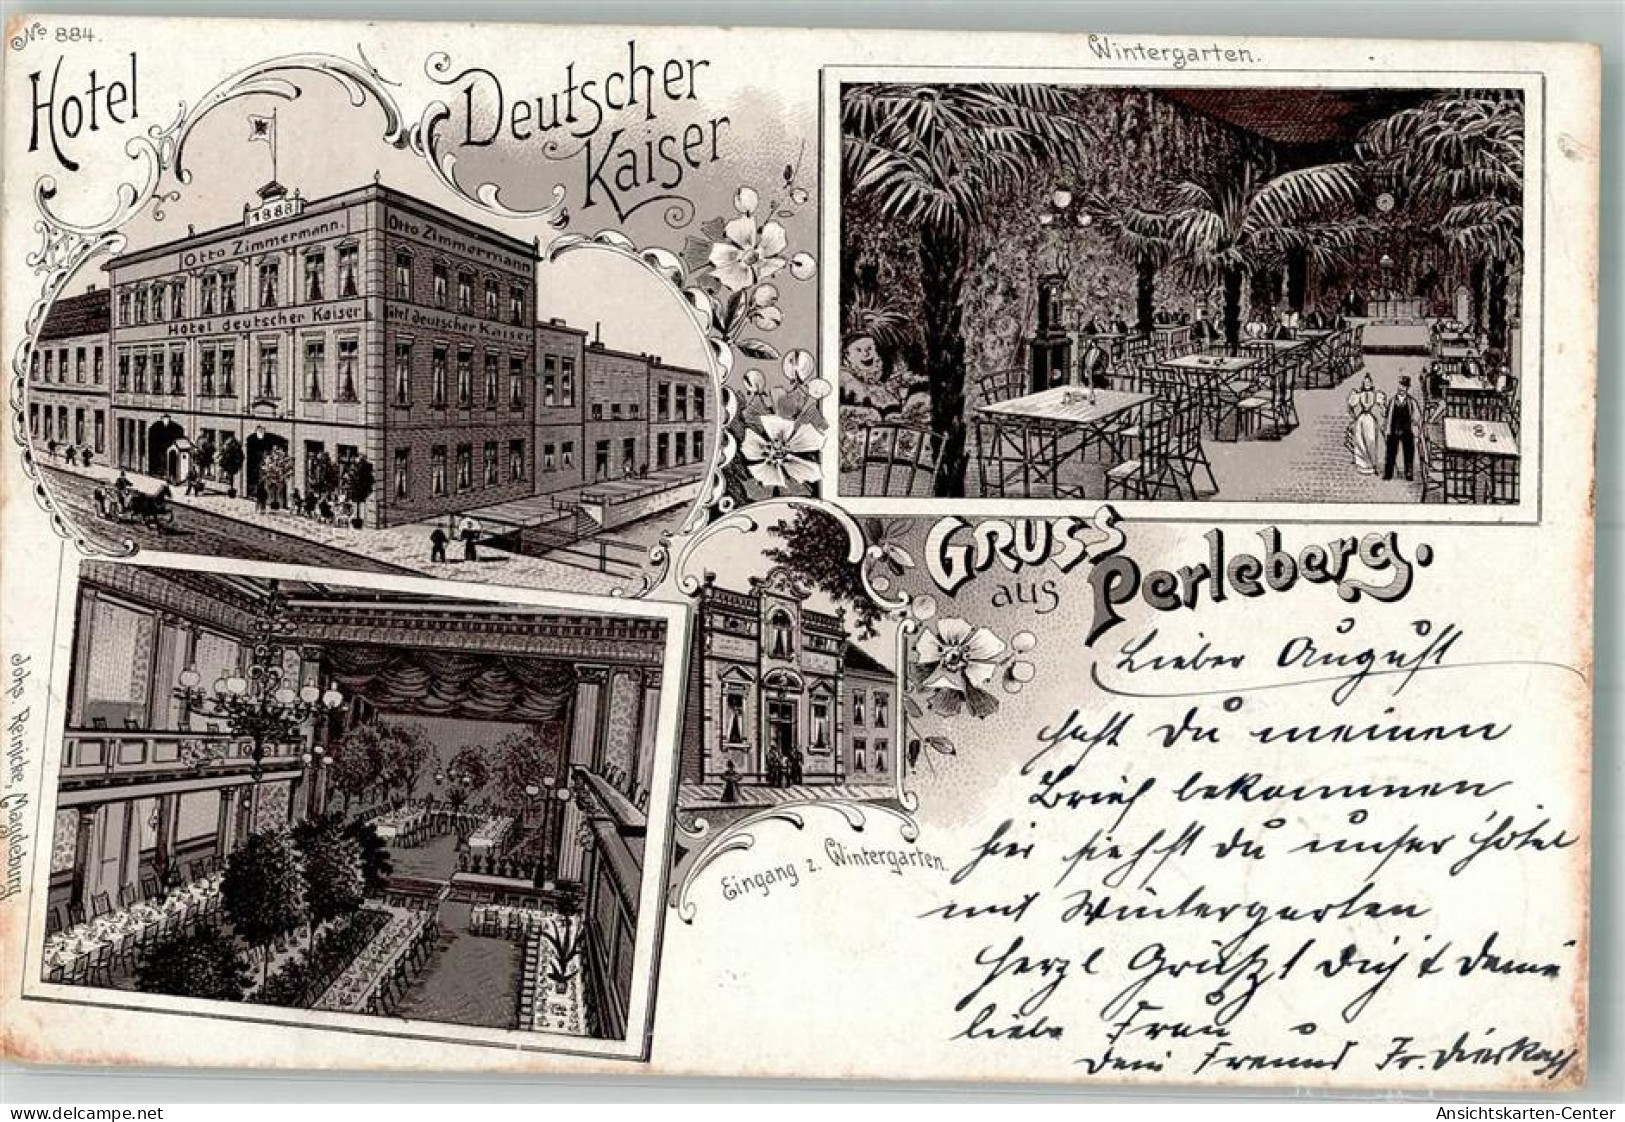 No 884.
Hotel
Deutscher
Kaiser
Wintergarten.
1888
Otto Zimmermann.
Otto Zimmermann
Hotel deutscher Kaiser
Hotel deutscher Kaiser
8
Gruss
aus
Perleberg.
Lieber August
hast Du meinen
Brief bekommen
hier siehst Du unser Hotel
mit Wintergarten
Herzl Grüßt Dich & Deine
liebe Frau
Dein Freund Fr.
Eingang z. Wintergarten.
Johs. Reinjcke, Magdeburg
Ansichtskarten-Center